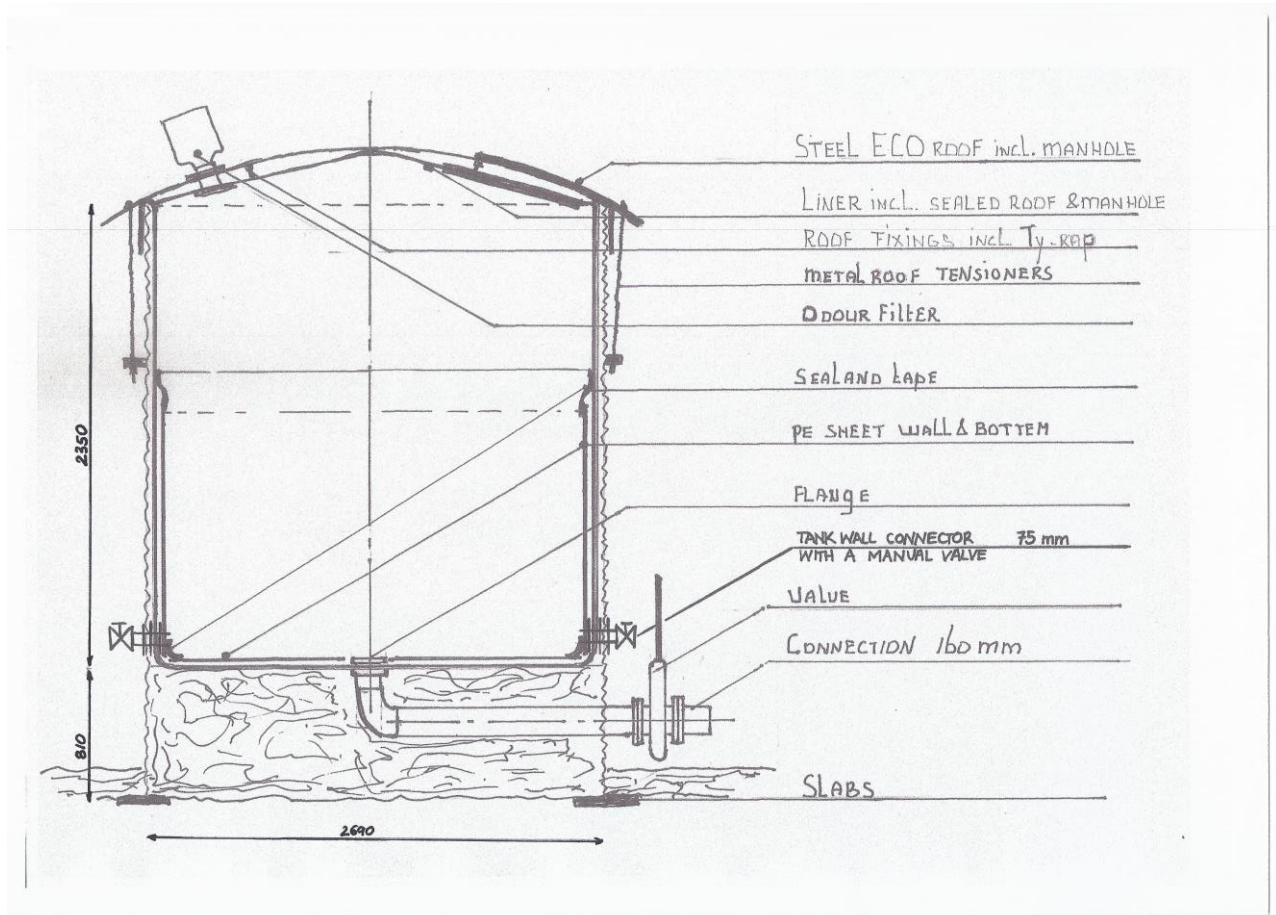 STEEL ECO ROOF incl. MANHOLE
LINER INCL. SEALED ROOF & MANHOLE
ROOF FIXINGS INCL. Ty-RAP
METAL ROOF TENSIONERS
ODOUR FILTER
SEALAND TAPE
PE SHEET WALL & BOTTEM
FLANGE
TANK WALL CONNECTOR 75 mm
WITH A MANUAL VALVE
VALVE
CONNECTION 160 mm
SLABS
2350
810
2690